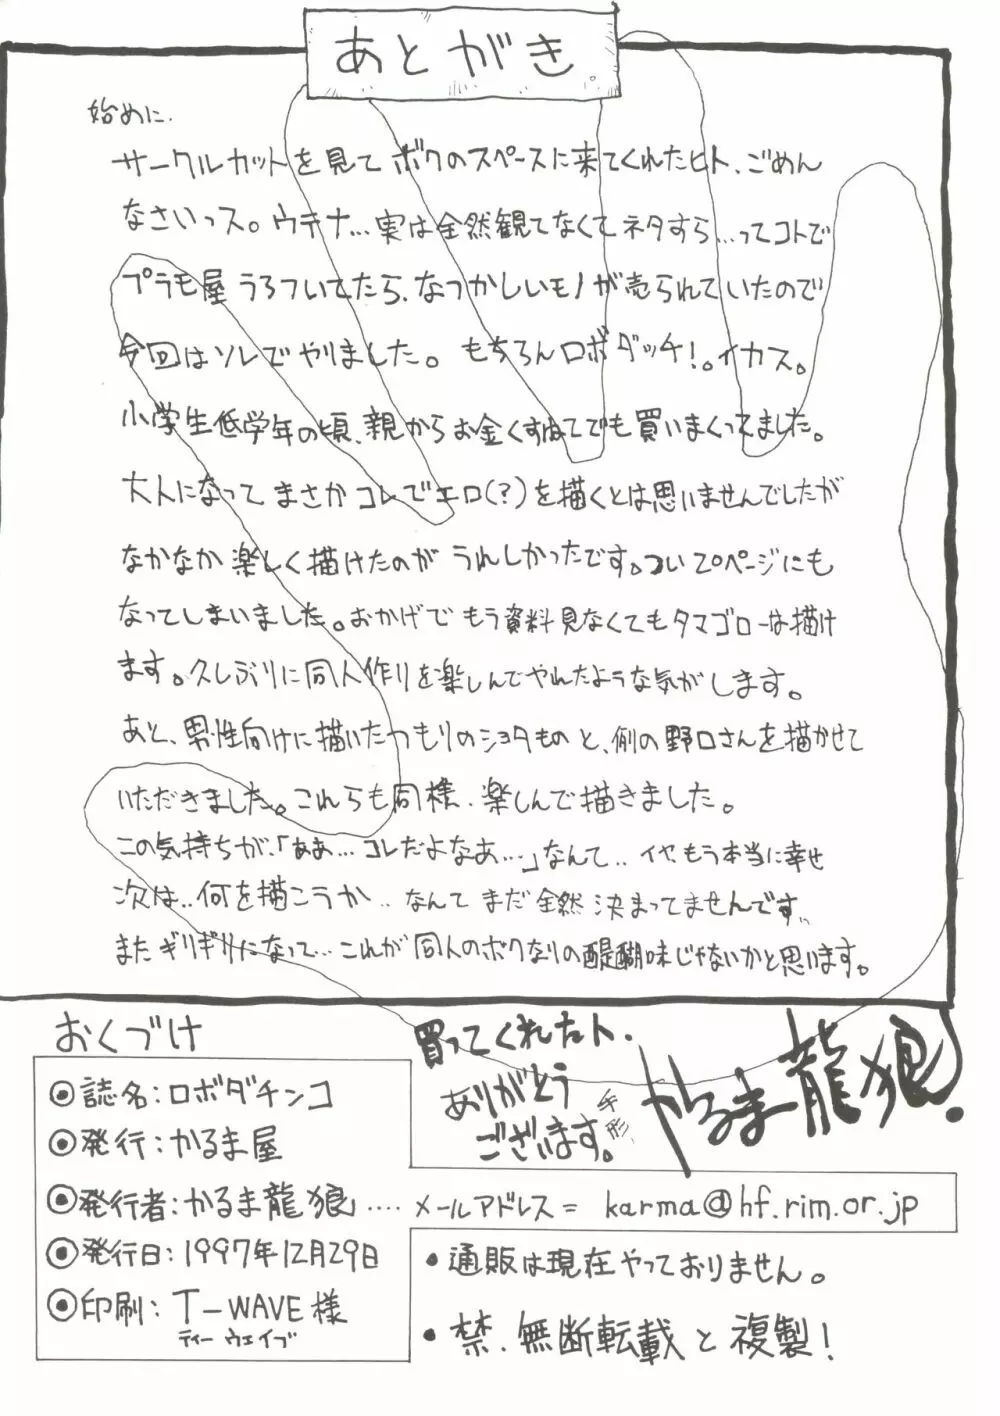 あとがき
始めに.
サークルカットを見てボクのスペースに来てくれたヒト、ごめん
なさいっス。ウテナ…実は全然観てなくてネタすら…ってコトで
プラモ屋うろついてたら、なつかしいモノが売られていたので
今回はソレでやりました。もちろんロボダッチ!。イカス。
小学生低学年の頃、親からお金くすねてでも買いまくってました。
大人になってまさかコレでエロ(?)を描くとは思いませんでしたが
なかなか楽しく描けたのがうれしかったです。つい20ページにも
なってしまいました。おかげでもう資料見なくてもタマゴローは描け
ます。久しぶりに同人作りを楽しんでやれたような気がします。
あと、男性向けに描いたつもりのショタものと、例の野口さんを描かせて
いただきました。これらも同様、楽しんで描きました。
この気持ちが、「ああ…コレだよなあ…」なんて‥イヤもう本当に幸せ
次は‥何を描こうか‥なんてまだ全然決まってませんです‥
またギリギリになって…これが同人のボクなりの醍醐味じゃないかと思います。
おくづけ
◉誌名:ロボダチンコ
◉発行:かるま屋
◉発行者:かるま龍狼....メールアドレス= karma@hf.rim.or.jp
◉発行日:1997年12月29日
◉印刷:T-WAVE様
ティー ウェイブ
買ってくれたヒト.
ありがとう
ございます。
手形.
かるま龍狼!
・通販は現在やっておりません。
・禁.無断転載と複製!